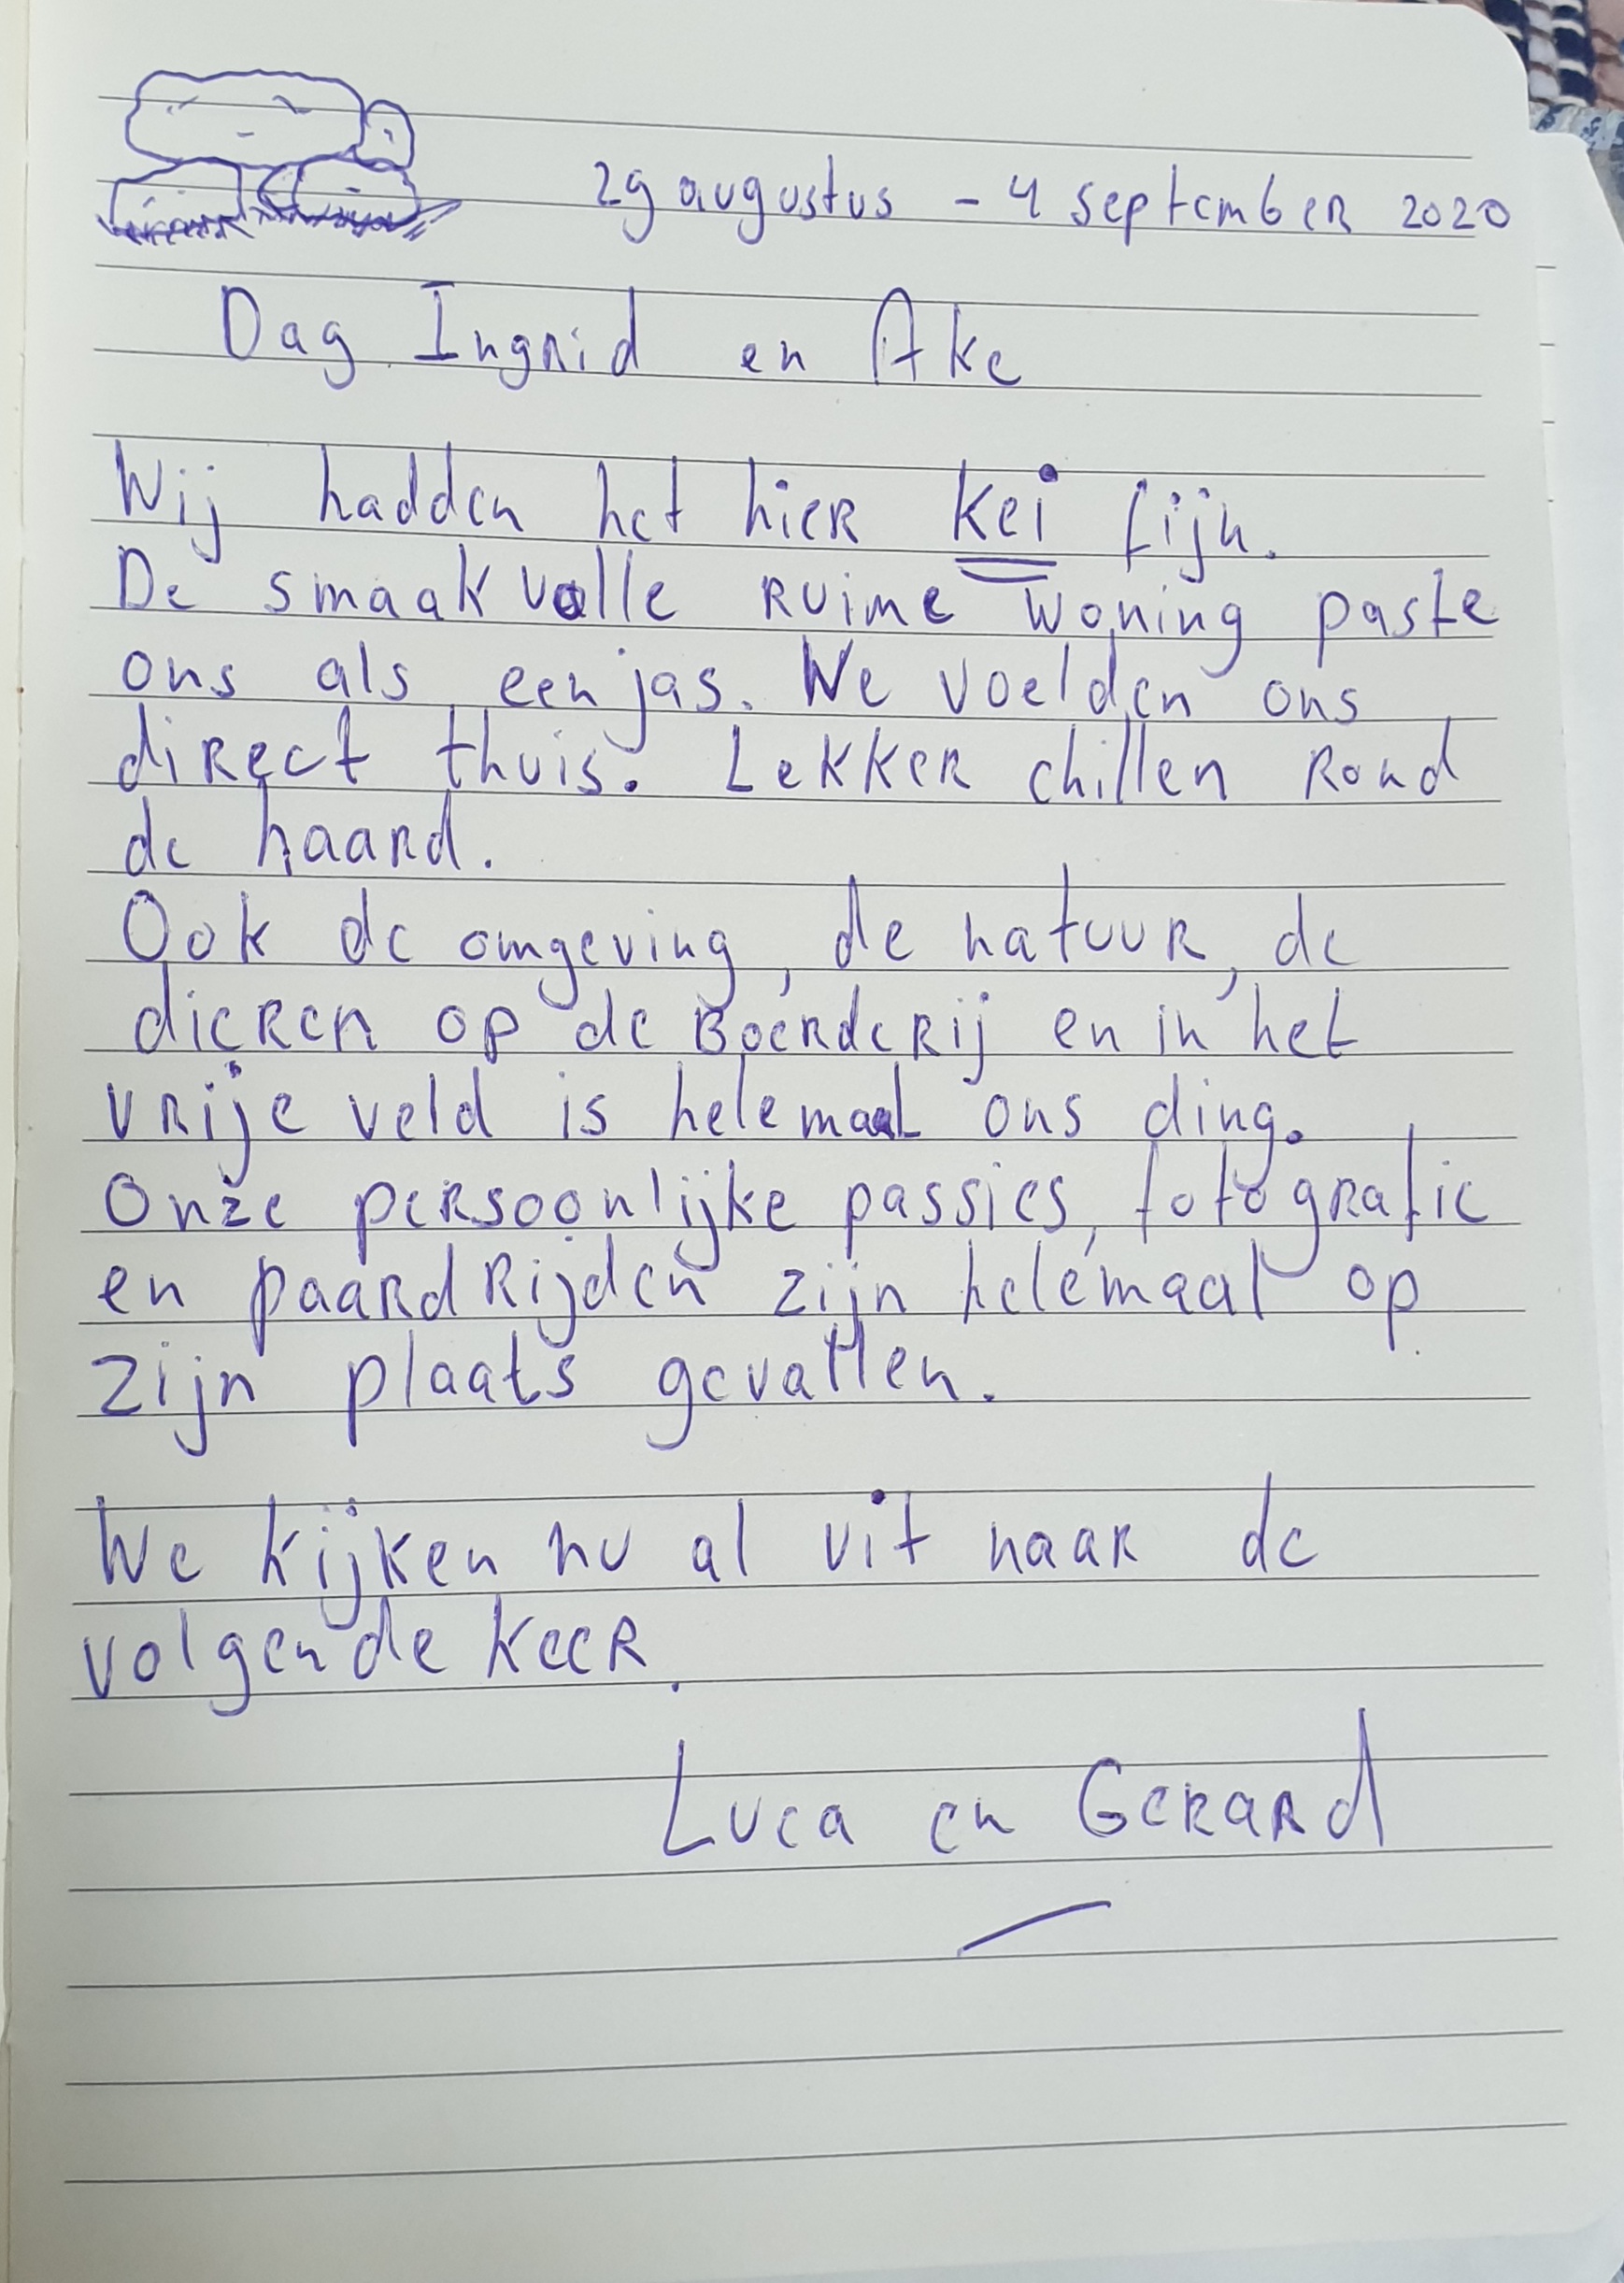 29 augustus - 4 september 2020
Dag Ingrid en Ake
Wij hadden het hier kei fijn.
De smaakvolle ruime woning paste
ons als een jas. We voelden ons
direct thuis. Lekker chillen rond
de haard.
Ook de omgeving, de natuur, de
dieren op de Boerderij en in het
vrije veld is helemaal ons ding.
Onze persoonlijke passies, fotografie
en paardrijden zijn helemaal op
zijn plaats gevallen.
We kijken nu al uit naar de
volgende keer.
Luca en Gerard